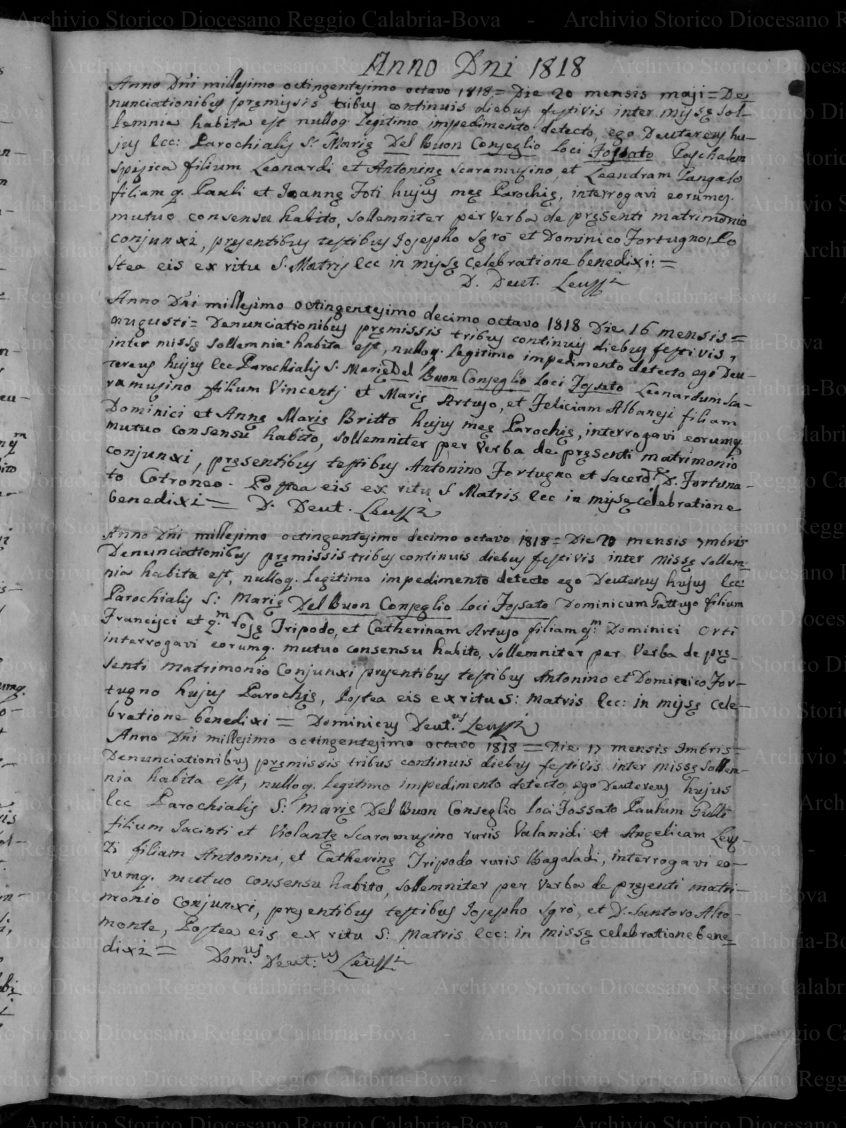 Archivio Storico Diocesano Reggio Calabria-Bova - Archivio Storico Diocesano
Anno Dñi 1818
Anno Dñi millesimo octingentesimo octavo 1818 = Die 20 mensis maji = De-
nunciationibus pręmissis tribus continuis diebus festivis inter missę sol-
lemnia habita est nulloq. legitimo impedimento detecto, ego Deutereus hu-
jus Ecc: Parochialis S: Marię Del Buon Conseglio Loci Fossato Paschalem
filium Leonardi et Antoninę Scaramusino et Leandram Pangalo
filiam q. Pauli et Joannę Foti hujus meę Parochię, interrogavi eorumq.
mutuo consensu habito, sollemniter per verba de pręsenti matrimonio
conjunxi, pręsentibus testibus Josepho Sgrò et Dominico Fortugno, Po-
stea eis ex ritu S: Matris Ecc in missę celebratione benedixi: =
D. Deut. Leuzzi
Anno Dñi millesimo octingentesimo decimo octavo 1818 Die 16 mensis =
augusti = Denunciationibus pręmissis tribus continuis diebus festivis,
inter missę sollemnia habita est, nulloq. legitimo impedimento detecto ego Deu-
tereus hujus Ecc Parochialis S: Marię Del Buon Conseglio Loci Fossato Leonardum Sca-
ramusino filium Vincentj et Marię Artuso, et Feliciam Albanesi filiam
Dominici et Annę Marię Britto hujus meę Parochię, interrogavi eorumq.
mutuo consensu habito, sollemniter per verba de pręsenti matrimonio
conjunxi, pręsentibus testibus Antonino Fortugno et Sacerd. D. Fortuna-
to Cotroneo. Postea eis ex ritu S Matris Ecc in missę celebratione
benedixi = D. Deut. Leuzzi
Anno Dñi millesimo octingentesimo decimo octavo 1818 = Die 20 mensis 9mbris
Denunciationibus pręmissis tribus continuis diebus festivis inter missę sollem-
nia habita est, nulloq. legitimo impedimento detecto ego Deutereus hujus Ecc:
Parochialis S: Marię Del Buon Conseglio Loci Fossato Dominicum Gattuso filium
Francisci et q.m Tripodo, et Catherinam Artuso filiam q.m Dominici Orti
interrogavi eorumq. mutuo consensu habito, sollemniter per verba de prę-
senti matrimonio conjunxi pręsentibus testibus Antonino et Dominico For-
tugno hujus Parochię, Postea eis ex ritu S: Matris Ecc: in missę cele-
bratione benedixi = Dominicus Deut.us Leuzzi
Anno Dñi millesimo octingentesimo octavo 1818 = Die 17 mensis Xmbris =
Denunciationibus pręmissis tribus continuis diebus festivis inter missę sollem-
nia habita est, nulloq. legitimo impedimento detecto, ego Deutereus hujus
Ecc Parochialis S: Marię Del Buon Conseglio Loci Fossato Paulum Gullì
filium Jacinti et Violantę Scaramusino ruris Valanidi et Angelicam Leuz-
zi filiam Antonini, et Catherinę Tripodo ruris Bagaladi, interrogavi eo-
rumq. mutuo consensu habito, sollemniter per verba de pręsenti matri-
monio conjunxi, pręsentibus testibus Josepho Sgrò, et D. Santoro Alto-
monte, Postea eis ex ritu S: Matris Ecc: in missę celebratione bene-
dixi = Dom.us Deut.us Leuzzi